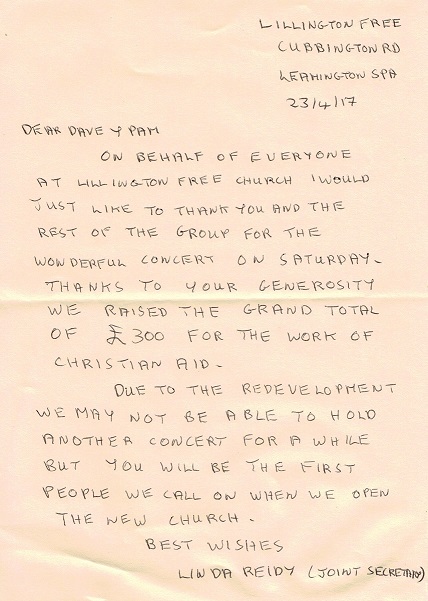 LILLINGTON FREE
CUBBINGTON RD
LEAMINGTON SPA
23/4/17
DEAR DAVE & PAM
ON BEHALF OF EVERYONE
AT LILLINGTON FREE CHURCH I WOULD
JUST LIKE TO THANK YOU AND THE
REST OF THE GROUP FOR THE
WONDERFUL CONCERT ON SATURDAY.
THANKS TO YOUR GENEROSITY
WE RAISED THE GRAND TOTAL
OF £300 FOR THE WORK OF
CHRISTIAN AID.
DUE TO THE REDEVELOPMENT
WE MAY NOT BE ABLE TO HOLD
ANOTHER CONCERT FOR A WHILE
BUT YOU WILL BE THE FIRST
PEOPLE WE CALL ON WHEN WE OPEN
THE NEW CHURCH.
BEST WISHES
LINDA REIDY (JOINT SECRETARY)